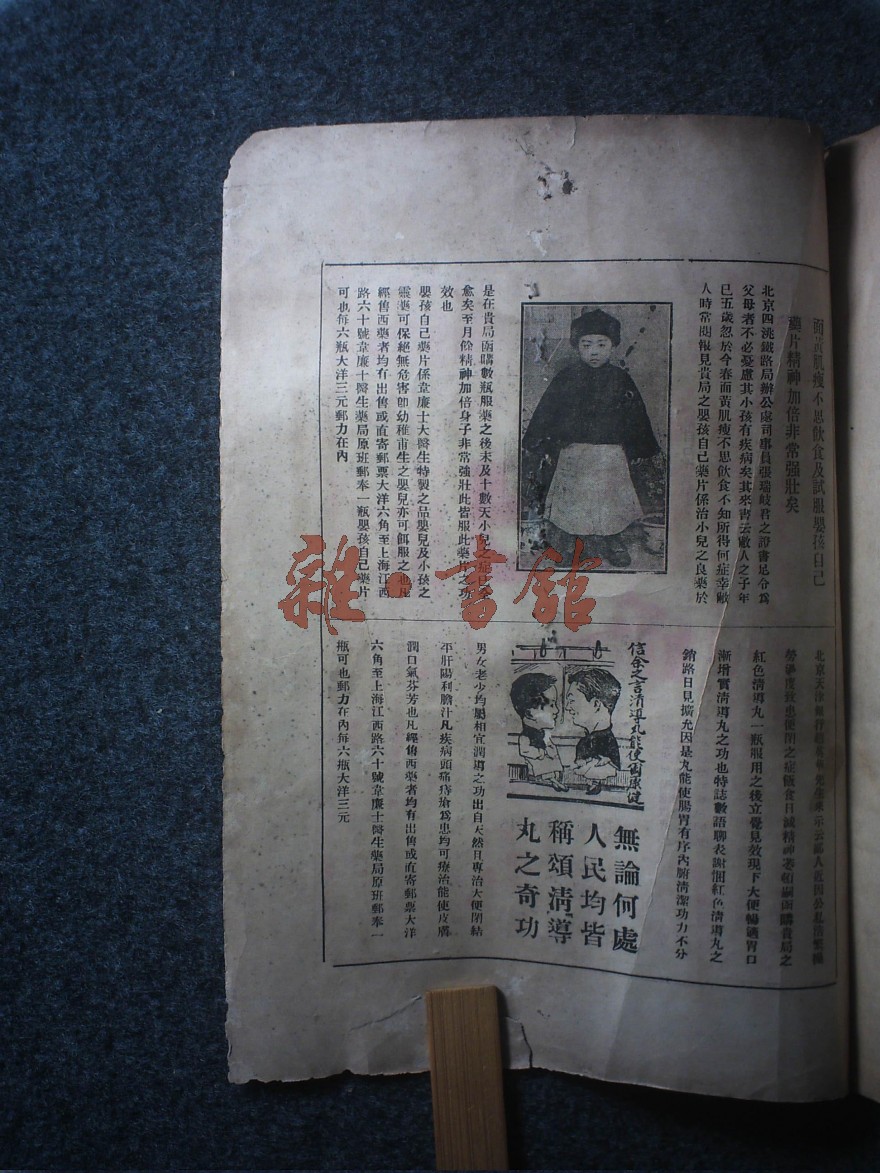 面黃肌瘦不思飲食及試服嬰孩自己
藥片精神加倍非常强壯矣
北京四洮鐵路局辦公處司事員張瑞岐君之證書足令為
父母者不必憂慮其小孩有疾病矣其來書云敝人之子年
已五歲忽於今春面黃肌瘦不思飲食不知所得何症幸敝
人時常閱報見貴局之嬰孩自己藥片係治小兒之良藥於
是在貴局函購數瓶服藥之後未及十數天小兒之症已全
愈矣至月餘精神加倍身子非常強壯此皆服此藥片之功
效也
嬰孩自己藥片係韋廉士大醫生特製之品嬰兒及小孩之
靈藥可保絕無危害卽幼稚甫生之嬰兒亦可餌服之也凡
經售西藥者均有出售或直寄郵票大洋六角至上海江西
路六十號韋廉士醫生藥局原班郵奉一瓶嬰孩自己藥片
可也每六瓶大洋三元郵力在內
雜·書館
信余之言清導丸能使爾康健
無論何處
人民均皆
稱頌清導
丸之奇功
北京天津
來示云鄙人近因公私浩繁
勞
過度致患便閉之症飯食日減精神萎頓嗣函購貴局之
紅色清導丸一瓶服用之後立覺見效現下大便暢適胃口
漸增實清導丸之功也特誌數語聊表謝悃紅色清導丸之
銷路日見擴充因是丸能使腸胃有序內腑清潔功力不分
男女老少均屬相宜潤導之功出自天然且專治大便閉結
平肝陽利膽汁凡疾病頭痛痔瘡為患均可療治能使皮膚
潤口氣芬芳也凡經售西藥者均有出售或直寄郵票大洋
六角至上海江西路六十號韋廉士醫生藥局原班郵奉一
瓶可也郵力在內每六瓶大洋三元